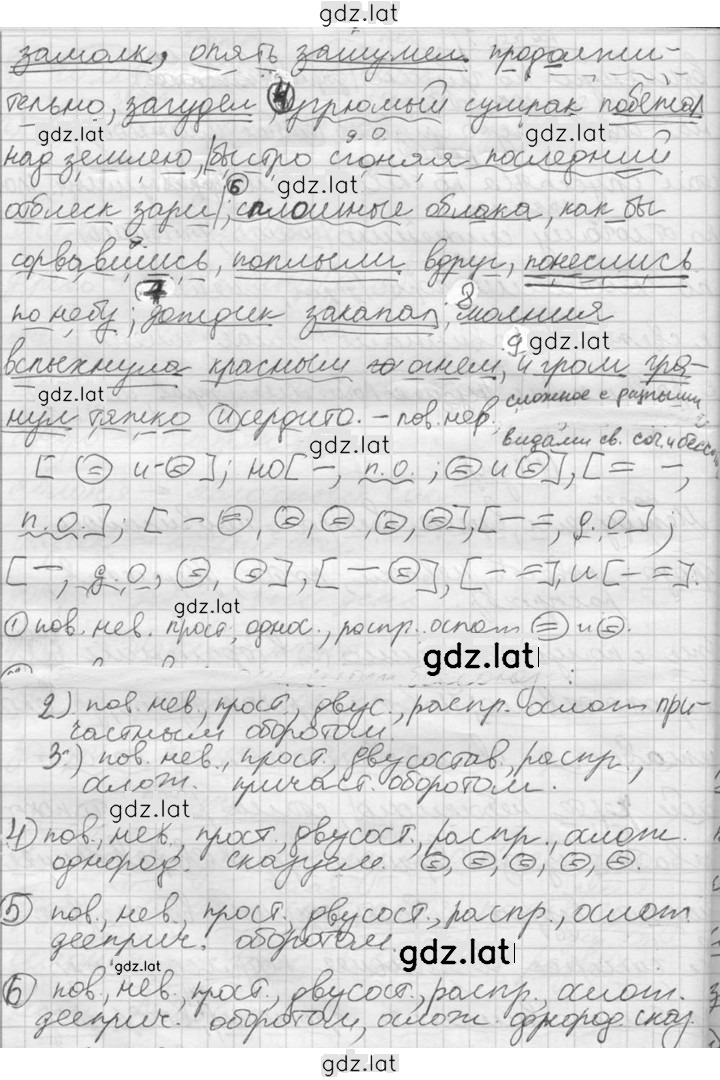 gdz.lat
замолк, опять зашумел продолжи-
тельно, загудел 4 угрюмый сумрак побежал
gdz.lat д.о
над землею, быстро сгоняя последний
6 gdz.lat
отблеск зари; сплошные облака, как бы
сорвавшись, поплыли вдруг, понеслись
7 8
по небу; дождик закапал, молния
9 gdz.lat
вспыхнула красным огнем, и гром гря-
gdz.lat
нул тяжко и сердито. – пов. нев. сложное с разными
видами св. соч. и бессоюз.
gdz.lat
[ = и = ]; но [ –, п.о. ; = и = ], [ = –,
п.о.]; [ – =, =, =, =, = ], [ – =, д.о.];
[ –, д.о, =, = ], [ – = ], [ – = ], и [ – = ].
gdz.lat
1 пов. нев. прост, однос., распр. ослож = и =.
gdz.lat
2) пов. нев., прост, двус., распр. ослож при-
частным оборотом.
3) пов. нев., прост, двусостав, распр.,
ослож. причаст. оборотом.
gdz.lat
4) пов., нев., прост, двусост., распр., ослож.
однород. сказуем. =, =, =, =, =.
5 пов., нев., прост, двусост., распр., ослож.
дееприч. оборотом. gdz.lat
gdz.lat
6 пов., нев., прост, двусост., распр., ослож.
дееприч. оборотом, ослож. однород. сказ.
gdz.lat